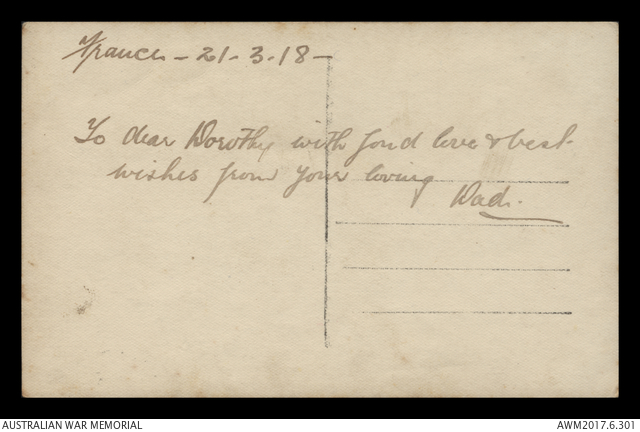 France - 21-3-18-
To dear Dorothy with fond love & best
wishes from your loving
Dad.
AUSTRALIAN WAR MEMORIAL
AWM2017.6.301